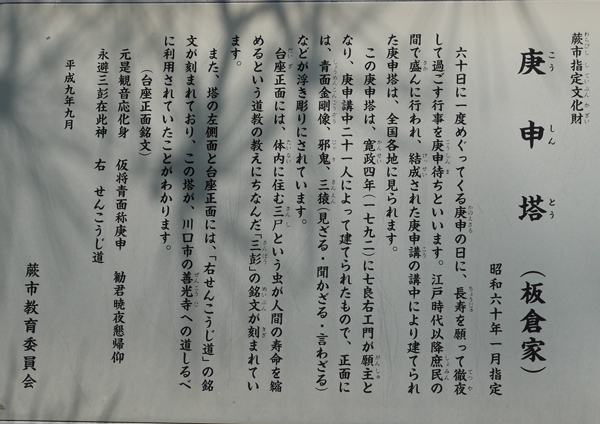 蕨市指定文化財
庚申塔（板倉家）
昭和六十年一月指定
六十日に一度めぐってくる庚申の日に、長寿を願って徹夜
して過ごす行事を庚申待ちといいます。江戸時代以降庶民の
間で盛んに行われ、結成された庚申講の講中により建てられ
た庚申塔は、全国各地に見られます。
この庚申塔は、寛政四年（一七九二）に七良右エ門が願主と
なり、庚申講中二十一人によって建てられたもので、正面に
は、青面金剛像、邪鬼、三猿（見ざる・聞かざる・言わざる）
などが浮き彫りにされています。
台座正面には、体内に住む三尸という虫が人間の寿命を縮
めるという道教の教えにちなんだ「三彭」の銘文が刻まれてい
ます。
また、塔の左側面と台座正面には、「右せんこうじ道」の銘
文が刻まれており、この塔が、川口市の善光寺への道しるべ
に利用されていたことがわかります。
（台座正面銘文）
元是観音応化身　仮将青面称庚申　勧君暁夜懇帰仰
永避三彭在此神　右　せんこうじ道
平成九年九月
蕨市教育委員会